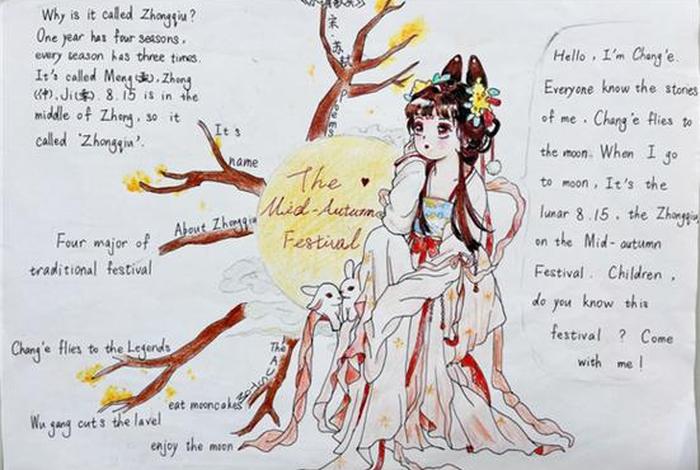 Why is it called Zhongqiu?
One year has four seasons,
every season has three times.
It's called Meng(孟), Zhong
(仲), Ji(季). 8.15 is in the
middle of Zhong, so it
called 'Zhongqiu'.
It's
name
About Zhongqiu
Four major of
traditional festival
Chang'e flies to the Legends
Wu gang cuts the lavel
eat mooncakes
enjoy the moon
The
宋·苏轼
Poems
The
Mid-Autumn
Festival
Hello, I'm Chang'e.
Everyone know the stories
of me. Chang'e flies to
the moon. When I go
to moon, It's the
lunar 8.15, the Zhongqiu
on the Mid-autumn
Festival. Children,
do you know this
festival? Come
with me!